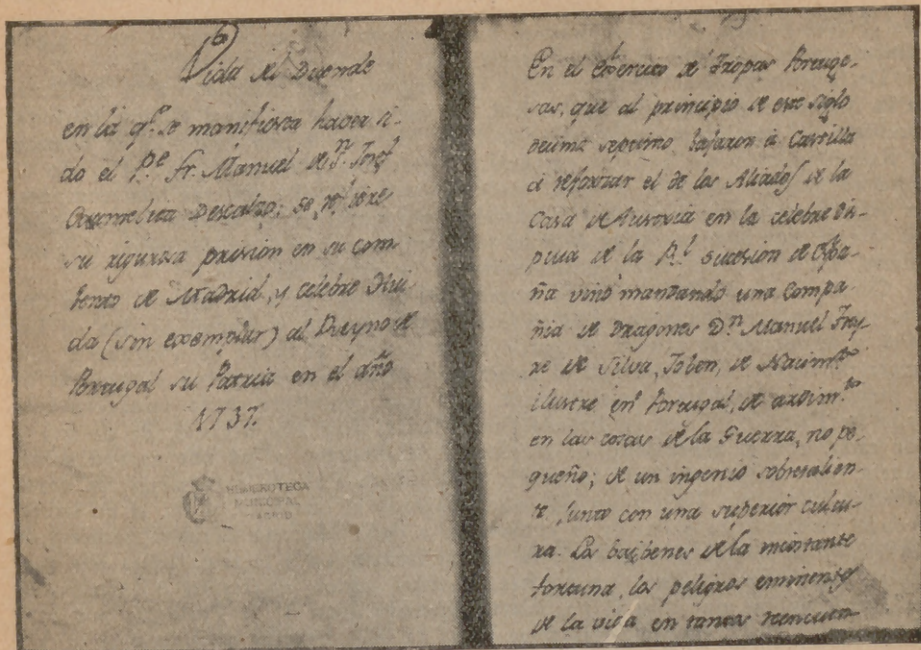 Vida del Duende
en la qe. se manifiesta haver si-
do el Pe. Fr. Manuel de Sn. Josef
Carmelita Descalzo; se refiere
su rigurosa prision en su com-
bento de Madrid, y celebre Hui-
da (sin exemplar) al Reyno de
Portugal su Patria en el año
1737.
HEMEROTECA
MUNICIPAL
MADRID
En el exercito de Tropas Portugue-
sas, que al principio de este siglo
decimo septimo bajaron a Castilla
a reforzar el de los Aliados de la
Casa de Austria en la celebre dis-
puta de la Rl. sucesion de Espa-
ña vino mandando una Compa-
ñia de Dragones Dn. Manuel Frey-
re de Silva, Joben, de Nacimto.
ilustre en Portugal, de ardimto.
en las cosas de la Guerra, no pe-
queño; de un ingenio sobresalien-
te, junto con una superior cultu-
ra. Los baibenes de la inconstante
fortuna, los peligros eminentes
de la vida en tantos